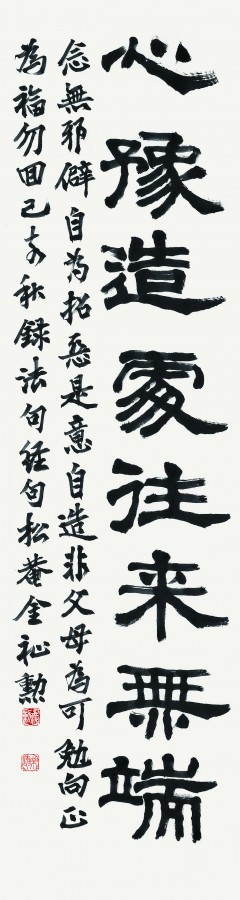 心豫造處往来無端
念無邪僻自為招惡是意自造非父母為可勉向正
為福勿回己亥秋録法句経句松菴金祉勳